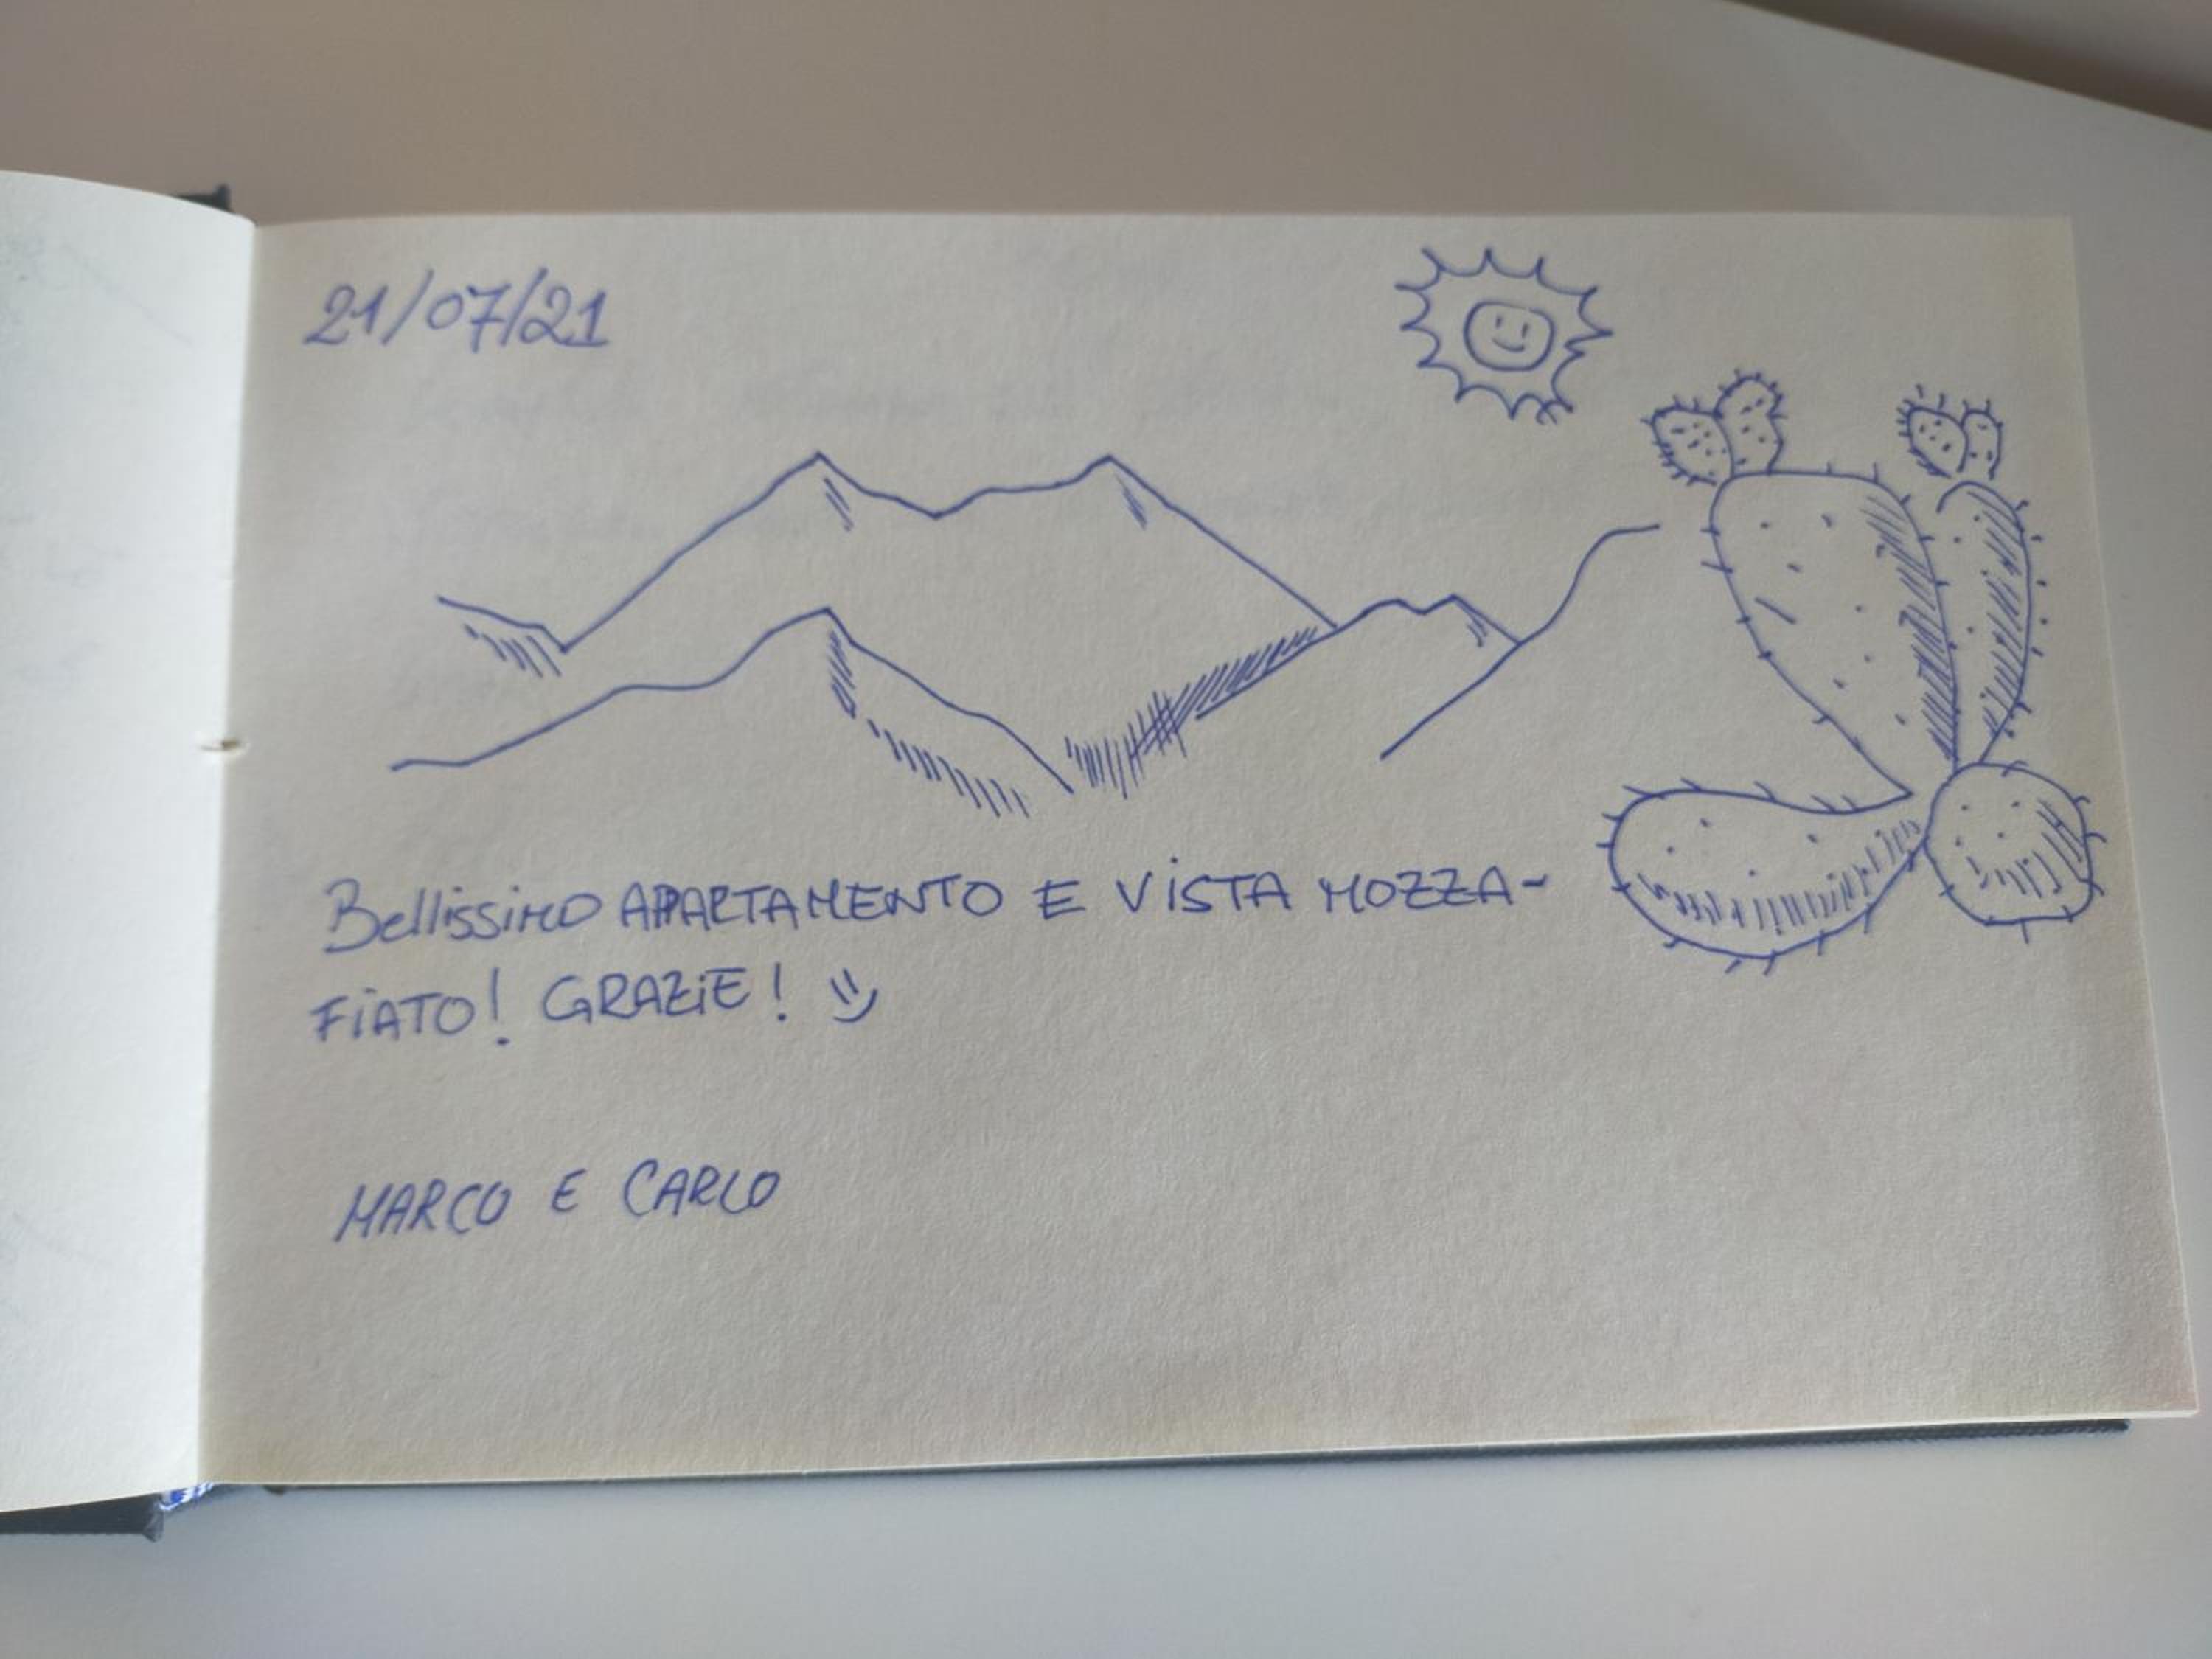 21/07/21
Bellissimo APPARTAMENTO E VISTA MOZZA-
FIATO! GRAZIE! :)
MARCO E CARLO